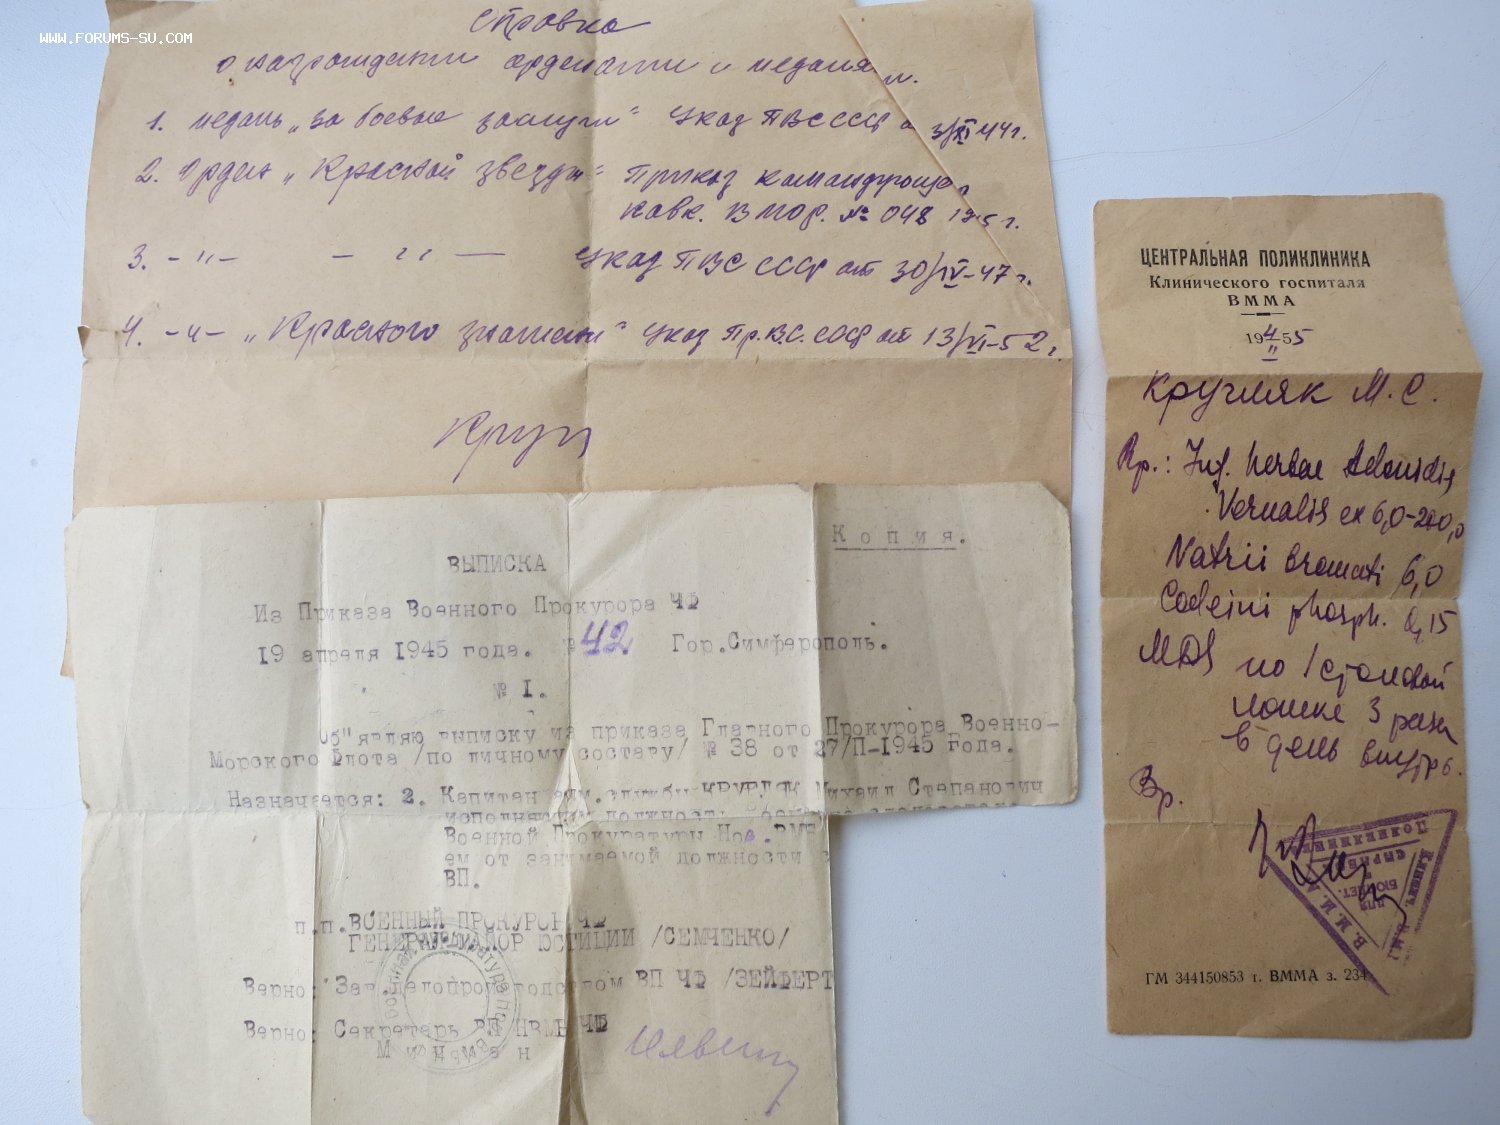 WWW.FORUMS-SU.COM
Справка
о награждении орденами и медалям и.
1. медаль „За боевые заслуги" Указ ПВС СССР 3/XI 44 г.
2. Орден „Красной звезды" Приказ командующе
КВМОР. № 048 г.
3. -"- - " - Указ ПВС СССР от 30/IV-47 г.
4. -"- „Красного знамени" Указ Пр.В.С. СССР от 13/VI-52 г.
Копия.
ВЫПИСКА
Из Приказа Военного Прокурора ЧФ
19 апреля 1945 года. № 42 Гор.Симферополь.
№ I.
Об"являю выписку из приказа Главного Прокурора Военно-
Морского Флота /по личному составу/ № 38 от 27/П-1945 года.
Назначается: 2. Капитан КРУГЛЯК Михаил Степанович
исполняющим должность
Военной Прокуратуры
ем от занимаемой должности
ВП.
п.п.ВОЕННЫЙ ПРОКУРОР ЧФ
ГЕНЕРАЛ-МАЙОР ЮСТИЦИИ /СЕМЧЕНКО/
Верно: Зав.делопроизводством ВП ЧФ /ЗЕЙФЕРТ
Верно: Секретарь ВП НВМБ ЧФ
ЦЕНТРАЛЬНАЯ ПОЛИКЛИНИКА
Клинического госпиталя
ВММА
19 4/II 55
Кругляк М.С.
Rp.: Inf. herbae Adonidis
Vernalis ex 6,0-200,0
Natrii bromati 6,0
Codeini phosph. 0,15
MDS по 1 столовой
ложке 3 раза
в день внутрь.
Вр.
В.М.М.А.
КЛИНИЧ.
ПОЛИКЛИНИКА
ДЛЯ
ГМ 344150853 г. ВММА з. 234